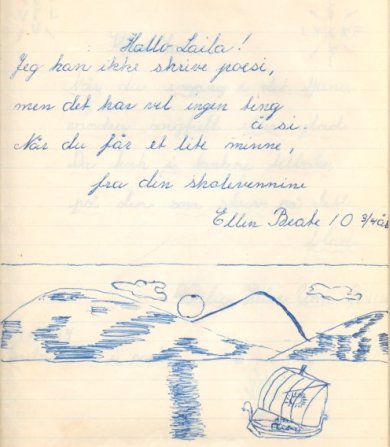 Hallo Laila!
Jeg kan ikke skrive poesi,
men det har vel ingen ting
å si.
Når du får et lite minne,
fra din skolevennine
Ellen Beate 10 3/4 år